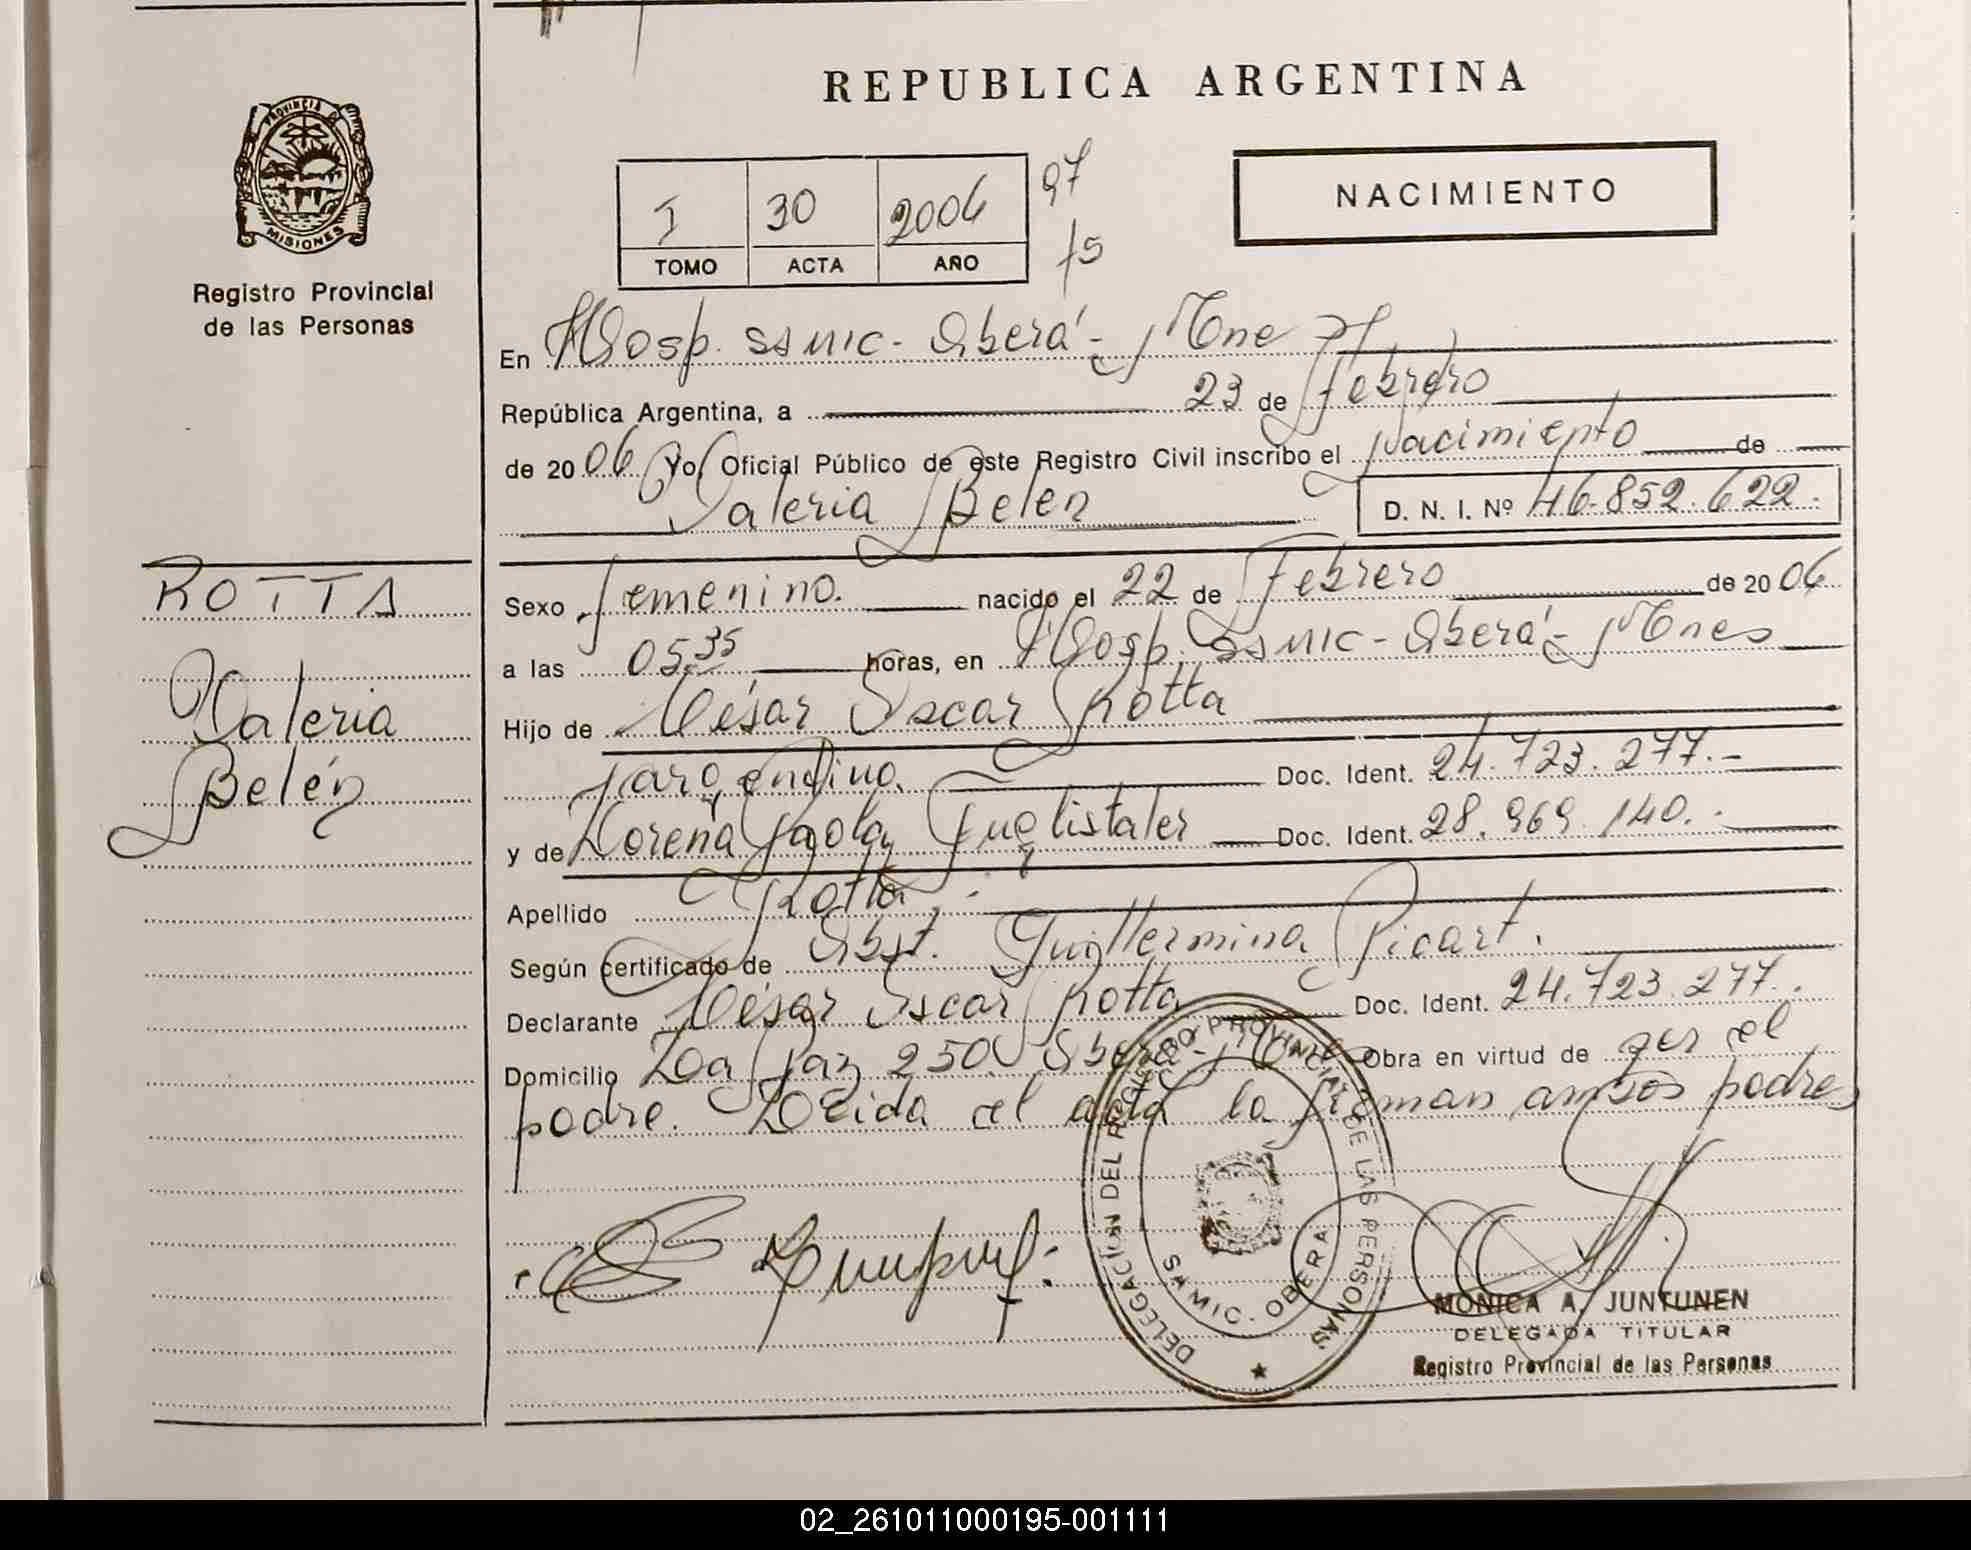 REPUBLICA ARGENTINA
PROVINCIA
MISIONES
Registro Provincial
de las Personas
I 30 2006 97
TOMO ACTA AÑO 75
NACIMIENTO
En Hosp. SAMIC - Oberá - Mnes
República Argentina, a 23 de Febrero
de 2006 Yo, Oficial Público de este Registro Civil inscribo el Nacimiento de
Valeria Belén D. N. I. Nº 46.852.622.
ROTTA
Valeria
Belén
Sexo femenino. nacido el 22 de Febrero de 2006
a las 05,35 horas, en Hosp. SAMIC - Oberá - Mnes
Hijo de César Oscar Rotta
argentino. Doc. Ident. 24.723.277.-
y de Lorena Paola Fuglistaler Doc. Ident. 28.969.140.-
Apellido Rotta.-
Según certificado de Obst. Guillermina Picart.
Declarante César Oscar Rotta Doc. Ident. 24.723.277.
Domicilio La Paz 250 Oberá - Mnes Obra en virtud de ser el
padre. Leída el acta la firman ambos padres
DELEGACION DEL REGISTRO PROVINCIAL DE LAS PERSONAS
SAMIC. OBERA
MONICA A. JUNTUNEN
DELEGADA TITULAR
Registro Provincial de las Personas
02_261011000195-001111